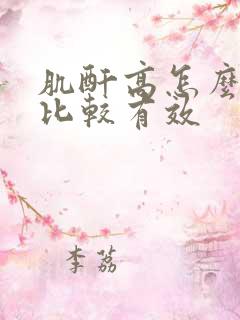 肌酐高怎麼
比較有效
李荔